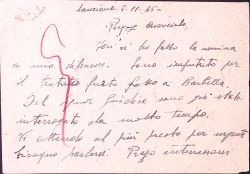 Lanciano 5-11-45-
Pregg. Avvocato
Ieri vi ho fatto la nomina
a mio difensore. Sono imputato per
il tentato furto fatto a Barbella.
Dal Giudice sono già stato
interrogato da molto tempo.
Vi attendo al più presto per urgente
bisogno parlarvi. Prego interessarvi